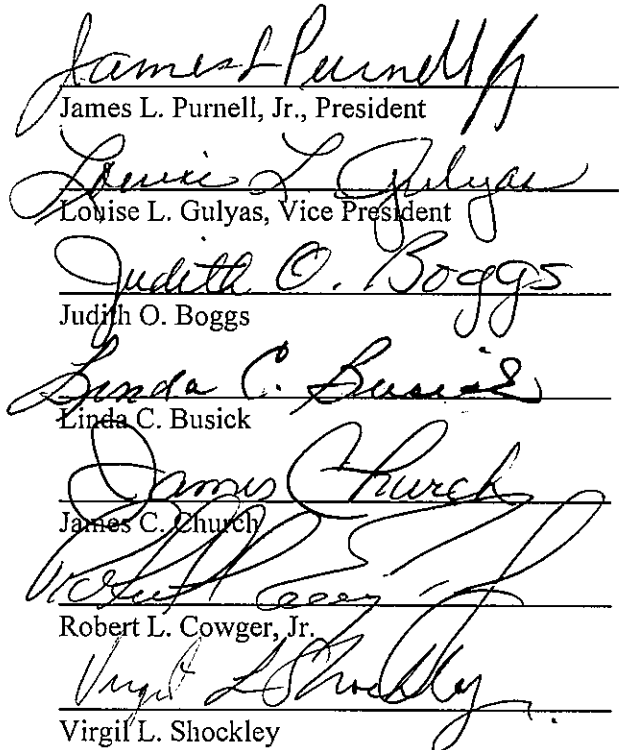 James L Purnell Jr
James L. Purnell, Jr., President
Louise L. Gulyas
Louise L. Gulyas, Vice President
Judith O. Boggs
Judith O. Boggs
Linda C. Busick
Linda C. Busick
James Church
James C. Church
Robert L. Cowger, Jr.
Virgil L Shockley
Virgil L. Shockley